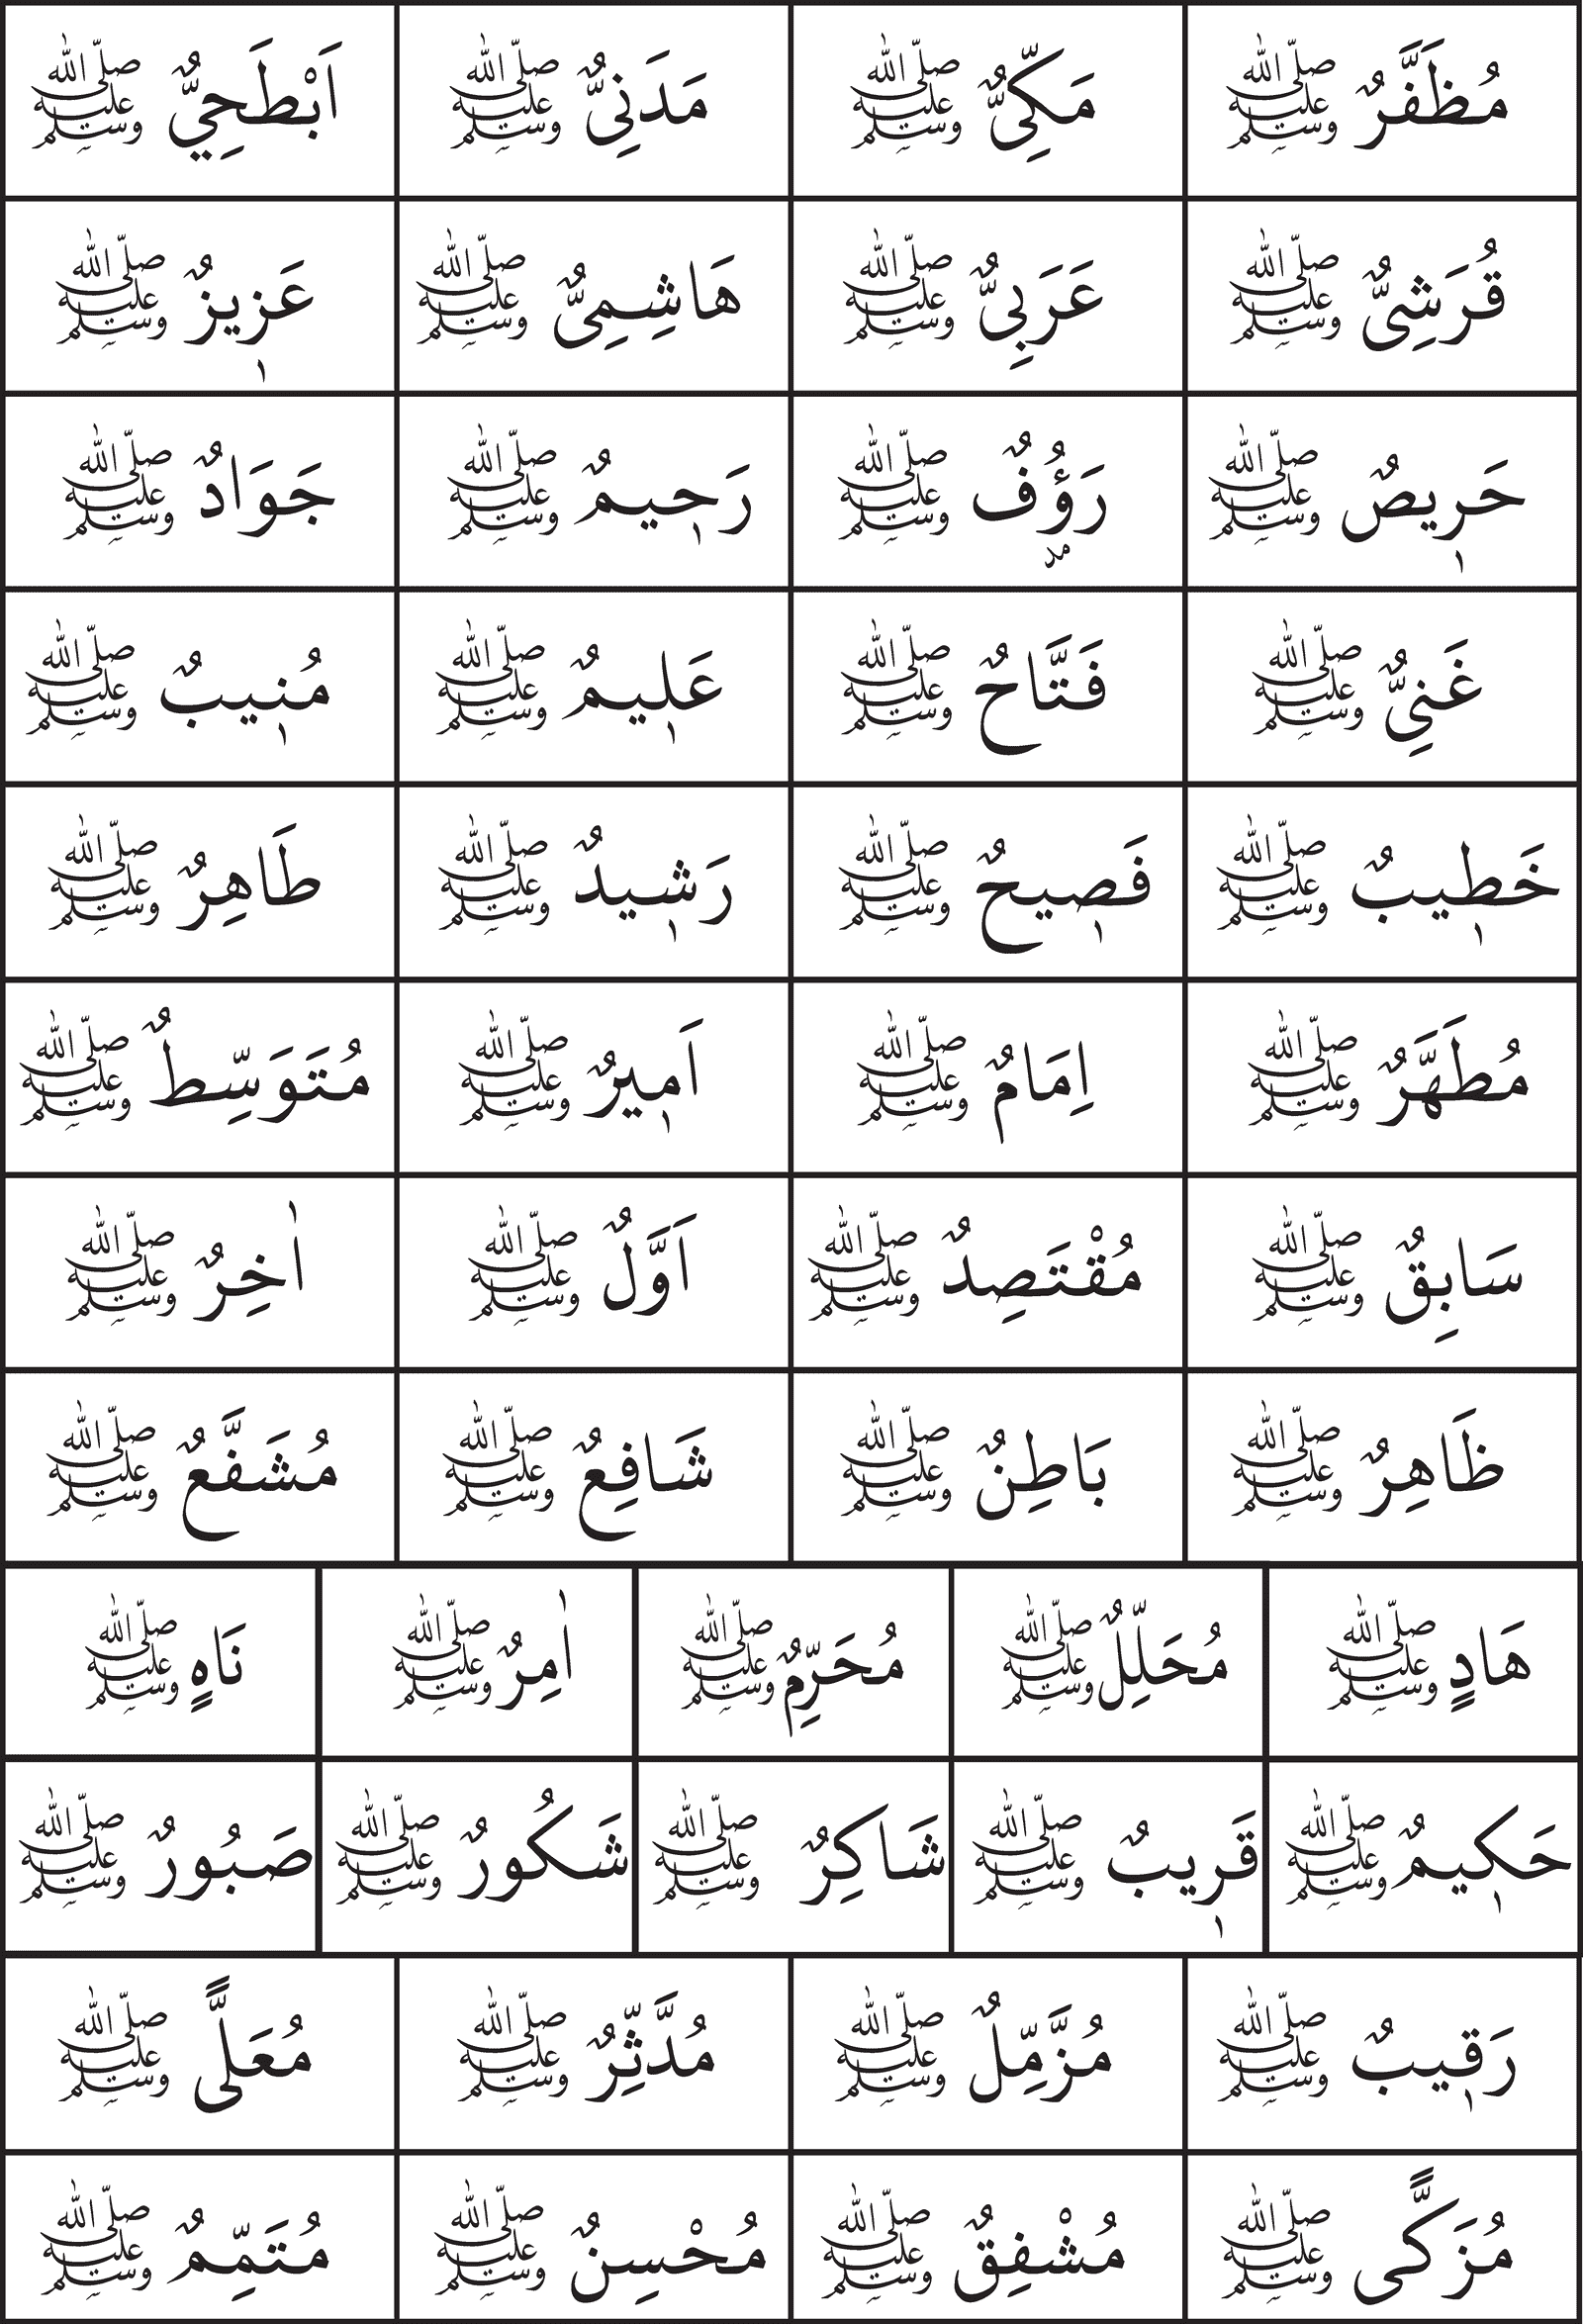 مُظَفَّرٌ صلى الله عليه وسلم مَكِّىٌّ صلى الله عليه وسلم مَدَنِىٌّ صلى الله عليه وسلم اَبْطَحِيٌّ صلى الله عليه وسلم
قُرَشِىٌّ صلى الله عليه وسلم عَرَبِىٌّ صلى الله عليه وسلم هَاشِمِىٌّ صلى الله عليه وسلم عَزٖيزٌ صلى الله عليه وسلم
حَرٖيصٌ صلى الله عليه وسلم رَؤُفٌ مد صلى الله عليه وسلم رَحٖيمٌ صلى الله عليه وسلم جَوَادٌ صلى الله عليه وسلم
غَنِىٌّ صلى الله عليه وسلم فَتَّاحٌ صلى الله عليه وسلم عَلٖيمٌ صلى الله عليه وسلم مُنٖيبٌ صلى الله عليه وسلم
خَطٖيبٌ صلى الله عليه وسلم فَصٖيحٌ صلى الله عليه وسلم رَشٖيدٌ صلى الله عليه وسلم طَاهِرٌ صلى الله عليه وسلم
مُطَهَّرٌ صلى الله عليه وسلم اِمَامٌ صلى الله عليه وسلم اَمٖيرٌ صلى الله عليه وسلم مُتَوَسِّطٌ صلى الله عليه وسلم
سَابِقٌ صلى الله عليه وسلم مُقْتَصِدٌ صلى الله عليه وسلم اَوَّلٌ صلى الله عليه وسلم اٰخِرٌ صلى الله عليه وسلم
ظَاهِرٌ صلى الله عليه وسلم بَاطِنٌ صلى الله عليه وسلم شَافِعٌ صلى الله عليه وسلم مُشَفَّعٌ صلى الله عليه وسلم
هَادٍ صلى الله عليه وسلم مُحَلِّلٌ صلى الله عليه وسلم مُحَرِّمٌ صلى الله عليه وسلم اٰمِرٌ صلى الله عليه وسلم نَاهٍ صلى الله عليه وسلم
حَكٖيمٌ صلى الله عليه وسلم قَرٖيبٌ صلى الله عليه وسلم شَاكِرٌ صلى الله عليه وسلم شَكُورٌ صلى الله عليه وسلم صَبُورٌ صلى الله عليه وسلم
رَقٖيبٌ صلى الله عليه وسلم مُزَّمِّلٌ صلى الله عليه وسلم مُدَّثِّرٌ صلى الله عليه وسلم مُعَلًّى صلى الله عليه وسلم
مُزَكًّى صلى الله عليه وسلم مُشْفِقٌ صلى الله عليه وسلم مُحْسِنٌ صلى الله عليه وسلم مُتَمِّمٌ صلى الله عليه وسلم